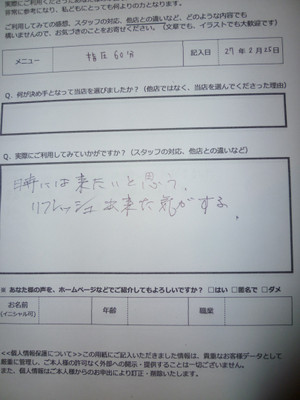 非常に参考になり、私どもにとっても何よりの力となります。
ご利用してみての感想、スタッフの対応、他店との違いなど、どのような内容でも
構いませんので、お気づきのことをお寄せください。(文章でも、イラストでも大歓迎です)
メニュー 指圧60分 記入日 27年8月25日
Q. 何が決め手となって当店を選びましたか?(他店ではなく、当店を選んでくださった理由)
Q. 実際にご利用してみていかがですか?(スタッフの対応、他店との違いなど)
時には来たいと思う。
リフレッシュ出来た気がする。
※ あなた様の声を、ホームページなどでご紹介してもよろしいですか? □はい □匿名で □ダメ
お名前 年齢 職業
(イニシャル可)
<<個人情報保護について>>この用紙にご記入いただきました情報は、貴重なお客様データとして
厳重に管理し、ご本人様の許可なく外部への開示・提供することは一切ございません。
また、個人情報はご本人様からのお申出により訂正・削除いたします。